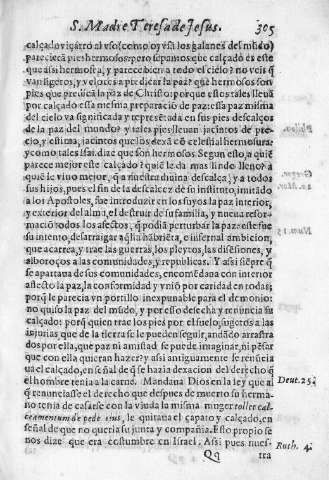 S. Madre Teresa de Jesus. 305
calçado vizarro al vso (como oy vsã los galanes del mũdo)
parecierã pies hermosos: pero sepamos que calçado es este
que assi hermosea, y parece bien a todo el cielo? no veis q̃
van ligeros, y veloces a predicar la paz? y que hermosos son
pies que predicã la paz de Christo: porque estos tales lleuã
por calçado essa mesma preparacio de paz: essa paz misma
del cielo va significada y representada en sus pies descalços
de la paz del mundo? y tales pies lleuan jacintos de pre-
cio, y estima, jacintos que los dexã cõ celestial hermosura:
y como tales Isai. dize que son hermosos. Segun esto, a quiẽ
parece mejor este calçado? quiẽ le da mas lindo lleno? a
quiẽ le vino mejor, q̃ a nuestra diuina descalça, y a todos
sus hijos, pues el fin de la descalcez de su instituto, imitado
a los Apostoles, fue introducir en los suyos la paz interior,
y exterior del alma, el destruir de su familia, y nueua refor-
maciō todos los afectos, q̃ podiã perturbar la paz: este fue
su intento, desarraigar aq̃lla habiẽta, e infernal ambicion,
que acarrea, y trae las guerras, los pleytos, las disensiones, y
alboroços a las comunidades, y republicas. Y assi siẽpre q̃
se apartaua de sus comunidades, encomẽdaua con interior
afecto la paz, la conformidad y vniõ por caridad en todas;
porq̃ le parecia vn portillo inexpunable para el demonio:
no quiso la paz del mũdo, y por esso desecha y renuncia su
calçado: porq̃ quien trae los pies por el suelo, sugetos a las
injurias que de la tierra se le pueden seguir, andãdo arrastra
dos por ella, que paz ni amistad se puede imaginar, ni pẽsar
que con ella quieran hazer? y assi antiguamente se renũcia
ua el calçado, en señal de q̃ se hazia dexacion del derecho q̃
el hombre tenia a la carne. Mandaua Dios en la ley que al
q̃ renunciasse el derecho que despues de muerto su herma-
no tenia de casarse con la viuda la misma muger toller cal-
ceamentum de pede eius, le quitaua el çapato y calçado, en
señal de que no queria su junta y compañia. Esto propio se
nos dize que era costumbre en Israel. Assi pues nues-
Qq tra
Deut. 25.
Ruth. 4.